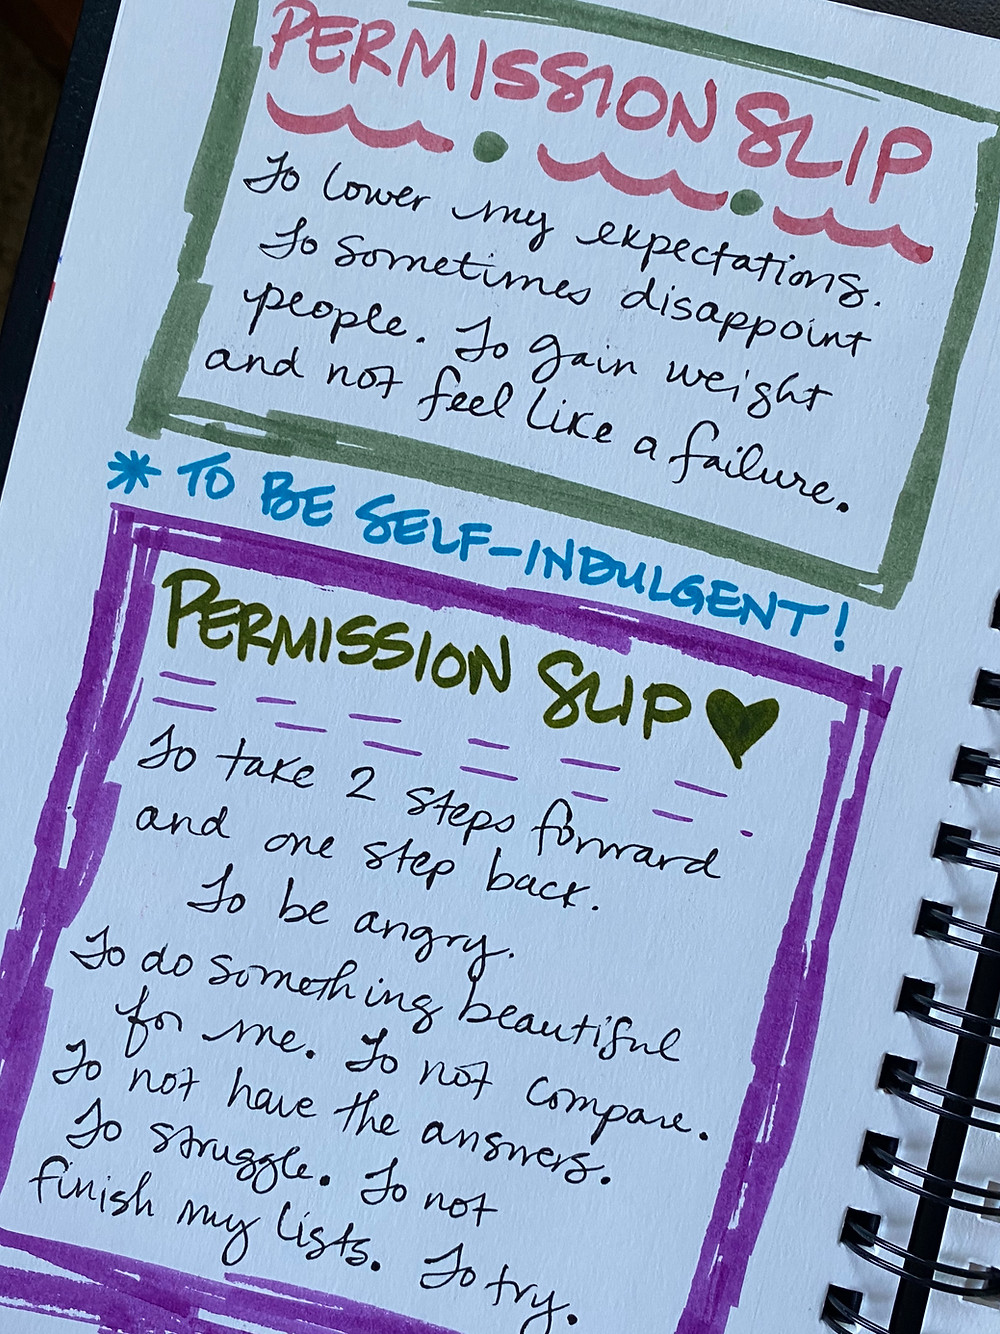 PERMISSION SLIP
To lower my expectations.
To sometimes disappoint
people. To gain weight
and not feel like a failure.
* TO BE SELF-INDULGENT!
PERMISSION SLIP ♥
To take 2 steps forward
and one step back.
To be angry.
To do something beautiful
for me. To not compare.
To not have the answers.
To struggle. To not
finish my lists. To try.